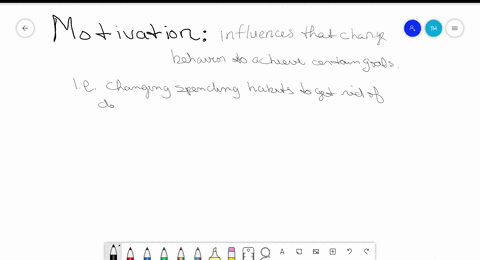 Motivation: influences that change
behavior to achieve certain goals.
I.e. changing spending habits to get rid of
do
TM
A